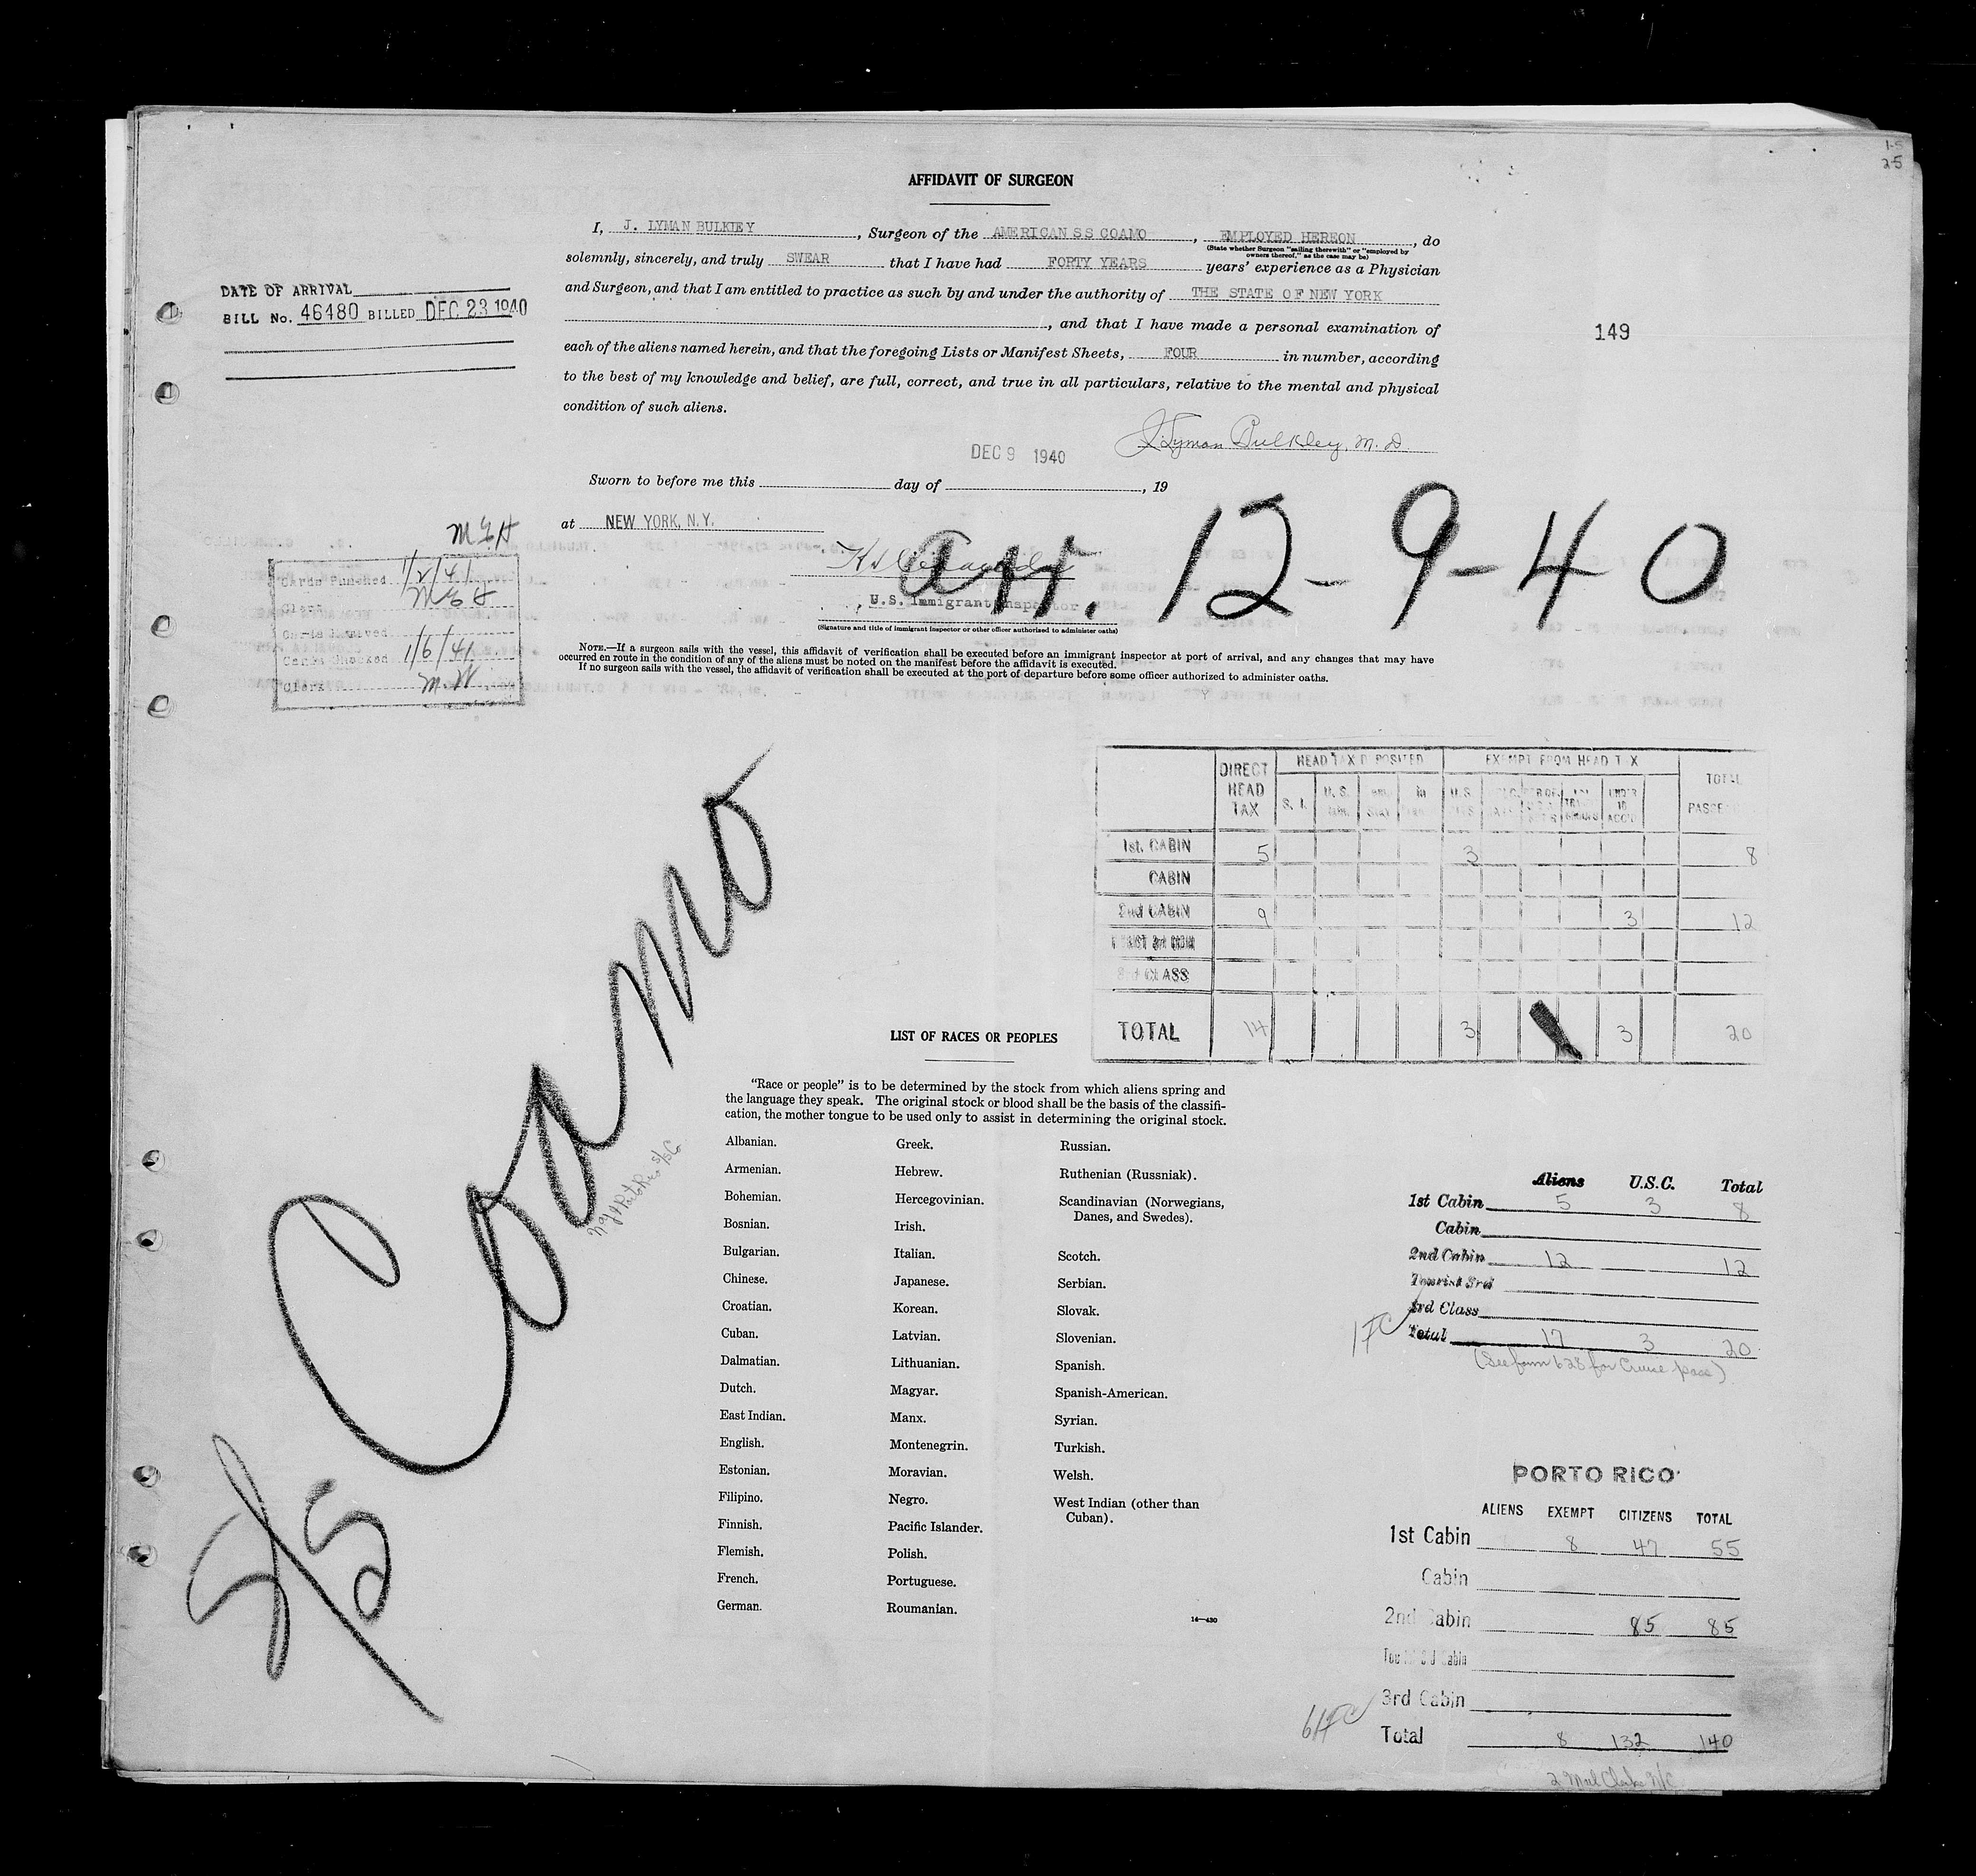 1-5
25
AFFIDAVIT OF SURGEON
I, J. LYMAN BULKLEY, Surgeon of the AMERICAN SS COAMO, EMPLOYED HEREON, do
(State whether Surgeon "sailing therewith" or "employed by
owners thereof," as the case may be)
solemnly, sincerely, and truly SWEAR that I have had FORTY YEARS years' experience as a Physician
and Surgeon, and that I am entitled to practice as such by and under the authority of THE STATE OF NEW YORK
, and that I have made a personal examination of
each of the aliens named herein, and that the foregoing Lists or Manifest Sheets, FOUR in number, according
to the best of my knowledge and belief, are full, correct, and true in all particulars, relative to the mental and physical
condition of such aliens.
DATE OF ARRIVAL
BILL No. 46480 BILLED DEC 23 1940
149
J. Lyman Bulkley, M. D.
DEC 9 1940
Sworn to before me this day of , 19
at NEW YORK, N.Y.
arr. 12-9-40
U.S. Immigrant Inspector
(Signature and title of immigrant inspector or other officer authorized to administer oaths)
NOTE.—If a surgeon sails with the vessel, this affidavit of verification shall be executed before an immigrant inspector at port of arrival, and any changes that may have
occurred en route in the condition of any of the aliens must be noted on the manifest before the affidavit is executed.
If no surgeon sails with the vessel, the affidavit of verification shall be executed at the port of departure before some officer authorized to administer oaths.
MEH
Cards Punched 1/2/41
Clerk MEH
Cards
Cards Checked 1/6/41
Clerk M.W.
S/S Coamo
DIRECT HEAD TAX
HEAD TAX DEPOSITED
EXEMPT FROM HEAD TAX
TOTAL
S. I. U. S. U.S. UNDER 16 ACC'D
1st. CABIN 5 3 8
CABIN
2nd CABIN 9 3 12
3rd CLASS
TOTAL 14 3 3 20
LIST OF RACES OR PEOPLES
"Race or people" is to be determined by the stock from which aliens spring and
the language they speak. The original stock or blood shall be the basis of the classifi-
cation, the mother tongue to be used only to assist in determining the original stock.
Albanian.
Armenian.
Bohemian.
Bosnian.
Bulgarian.
Chinese.
Croatian.
Cuban.
Dalmatian.
Dutch.
East Indian.
English.
Estonian.
Filipino.
Finnish.
Flemish.
French.
German.
Greek.
Hebrew.
Hercegovinian.
Irish.
Italian.
Japanese.
Korean.
Latvian.
Lithuanian.
Magyar.
Manx.
Montenegrin.
Moravian.
Negro.
Pacific Islander.
Polish.
Portuguese.
Roumanian.
Russian.
Ruthenian (Russniak).
Scandinavian (Norwegians,
Danes, and Swedes).
Scotch.
Serbian.
Slovak.
Slovenian.
Spanish.
Spanish-American.
Syrian.
Turkish.
Welsh.
West Indian (other than
Cuban).
14—430
Aliens U.S.C. Total
1st Cabin 5 3 8
Cabin
2nd Cabin 12 12
Tourist 3rd
3rd Class
Total 17 3 20
(See form 628 for Cruise pass)
PORTO RICO
ALIENS EXEMPT CITIZENS TOTAL
1st Cabin 8 47 55
Cabin
2nd Cabin 85 85
3rd Cabin
Total 8 132 140